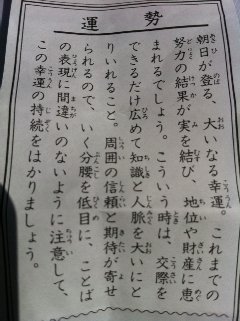 運勢
朝日が登る、大いなる幸運。これまでの
努力の結果が実を結び、地位や財産に恵
まれるでしょう。こういう時は、交際を
できるだけ広めて知識と人脈を大いにと
りいれること。周囲の信頼と期待が寄せ
られるので、いく分腰を低目に、ことば
の表現に間違いのないように注意して、
この幸運の持続をはかりましょう。